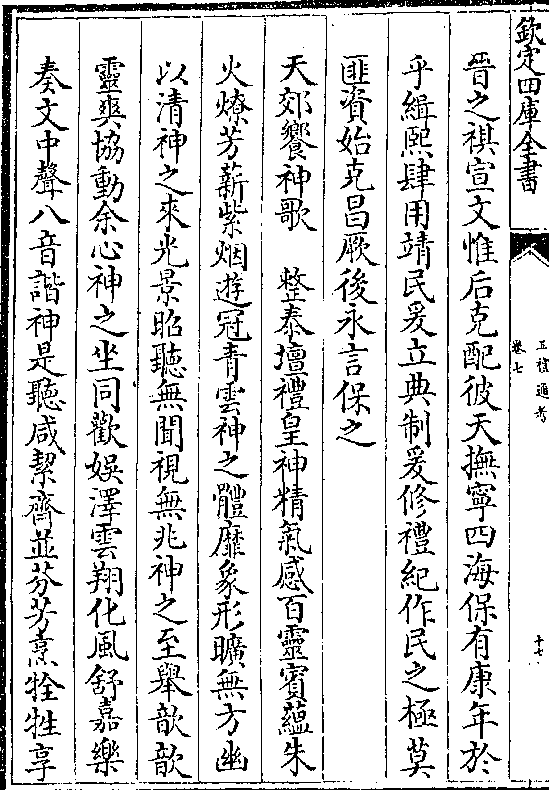 欽定四庫全書
五禮通考
卷七
十七
晉之祺宣文惟后克配彼天撫寧四海保有康年於
乎緝熙肆用靖民爰立典制爰修禮紀作民之極莫
匪資始克昌厥後永言保之
天郊饗神歌　整泰壇禮皇神精氣感百靈賓蘊朱
火燎芳薪紫烟遊冠青雲神之體靡象形曠無方幽
以清神之來光景昭聽無聞視無兆神之至舉歆歆
靈爽協動余心神之坐同歡娛澤雲翔化風舒嘉樂
奏文中聲八音諧神是聽咸絜齊並芬芳烹牷牲享